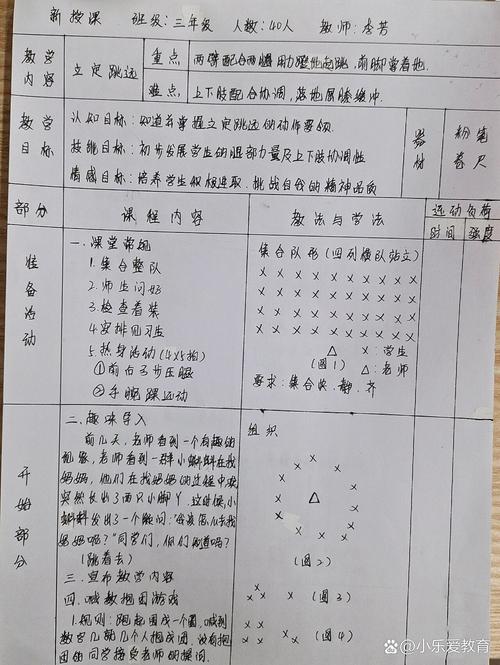 新授课 班级:三年级 人数:40人 教师:李芳
教学内容 立定跳远 重点 两臂配合两腿用力蹬地起跳,前脚着地。
难点 上下肢配合协调,落地屈膝缓冲.
教学目标 认知目标:知道并掌握立定跳远的动作要领
技能目标:初步发展学生的腿部力量及上下肢协调性
情感目标:培养学生积极进取、挑战自我的精神品质
器材 粉笔 卷尺
部分 课程内容 教法与学法 运动负荷
时间 强度
准备活动
一.课堂常规
1.集合整队
2.师生问好
3.检查着装
4.安排见习生
5.热身活动(4×8拍)
①前后弓步压腿
②手腕踝运动
集合队形(四列横队站立)
× × × × × × × × × ×
× × × × × × × × × ×
× × × × × × × × × ×
× × × × × × × × × ×
△ ×:学生
(图1) △:老师
要求:集合快、静、齐
开始部分
二.趣味导入
前几天,老师看到一个有趣的
现象,老师看到一群小蝌蚪在找
妈妈,他们在找妈妈的过程中
突然长出了两只小脚丫,这时候,小
蝌蚪发出了一个疑问:"
妈妈呢?"同学们,你们知道吗?
(跳着去)
三.宣布教学内容
四.喊数抱团游戏
1.规则:跑起围成一个圆,喊到
数字几就几个人抱成团,没有抱
团的同学接受老师的
组织
△
(图2)
(图3)
(图4)
@小乐爱教育